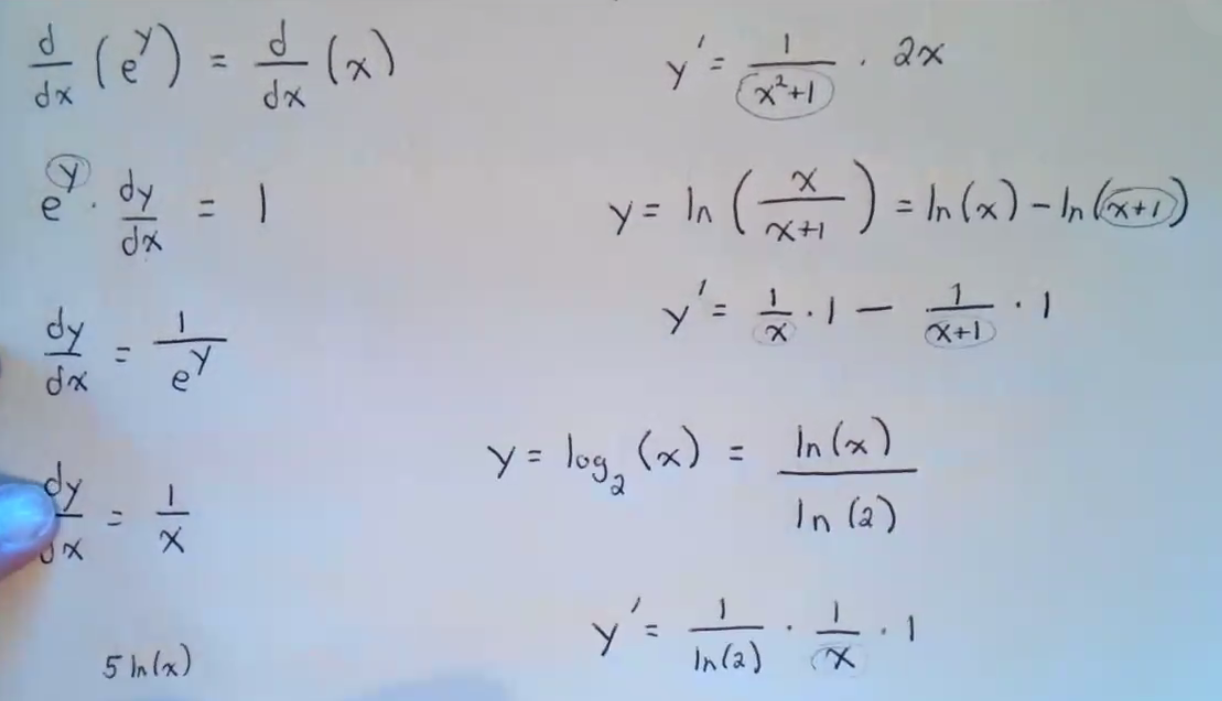 d/dx (e^y) = d/dx (x)
e^y · dy/dx = 1
dy/dx = 1/e^y
dy/dx = 1/x
5 ln(x)
y' = 1/(x²+1) · 2x
y = ln(x/(x+1)) = ln(x) - ln(x+1)
y' = 1/x · 1 - 1/(x+1) · 1
y = log₂(x) = ln(x)/ln(2)
y' = 1/ln(2) · 1/x · 1